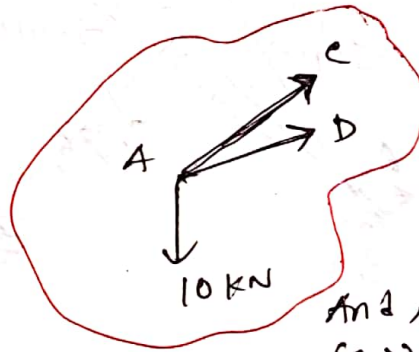 C
D
A
10 KN
And